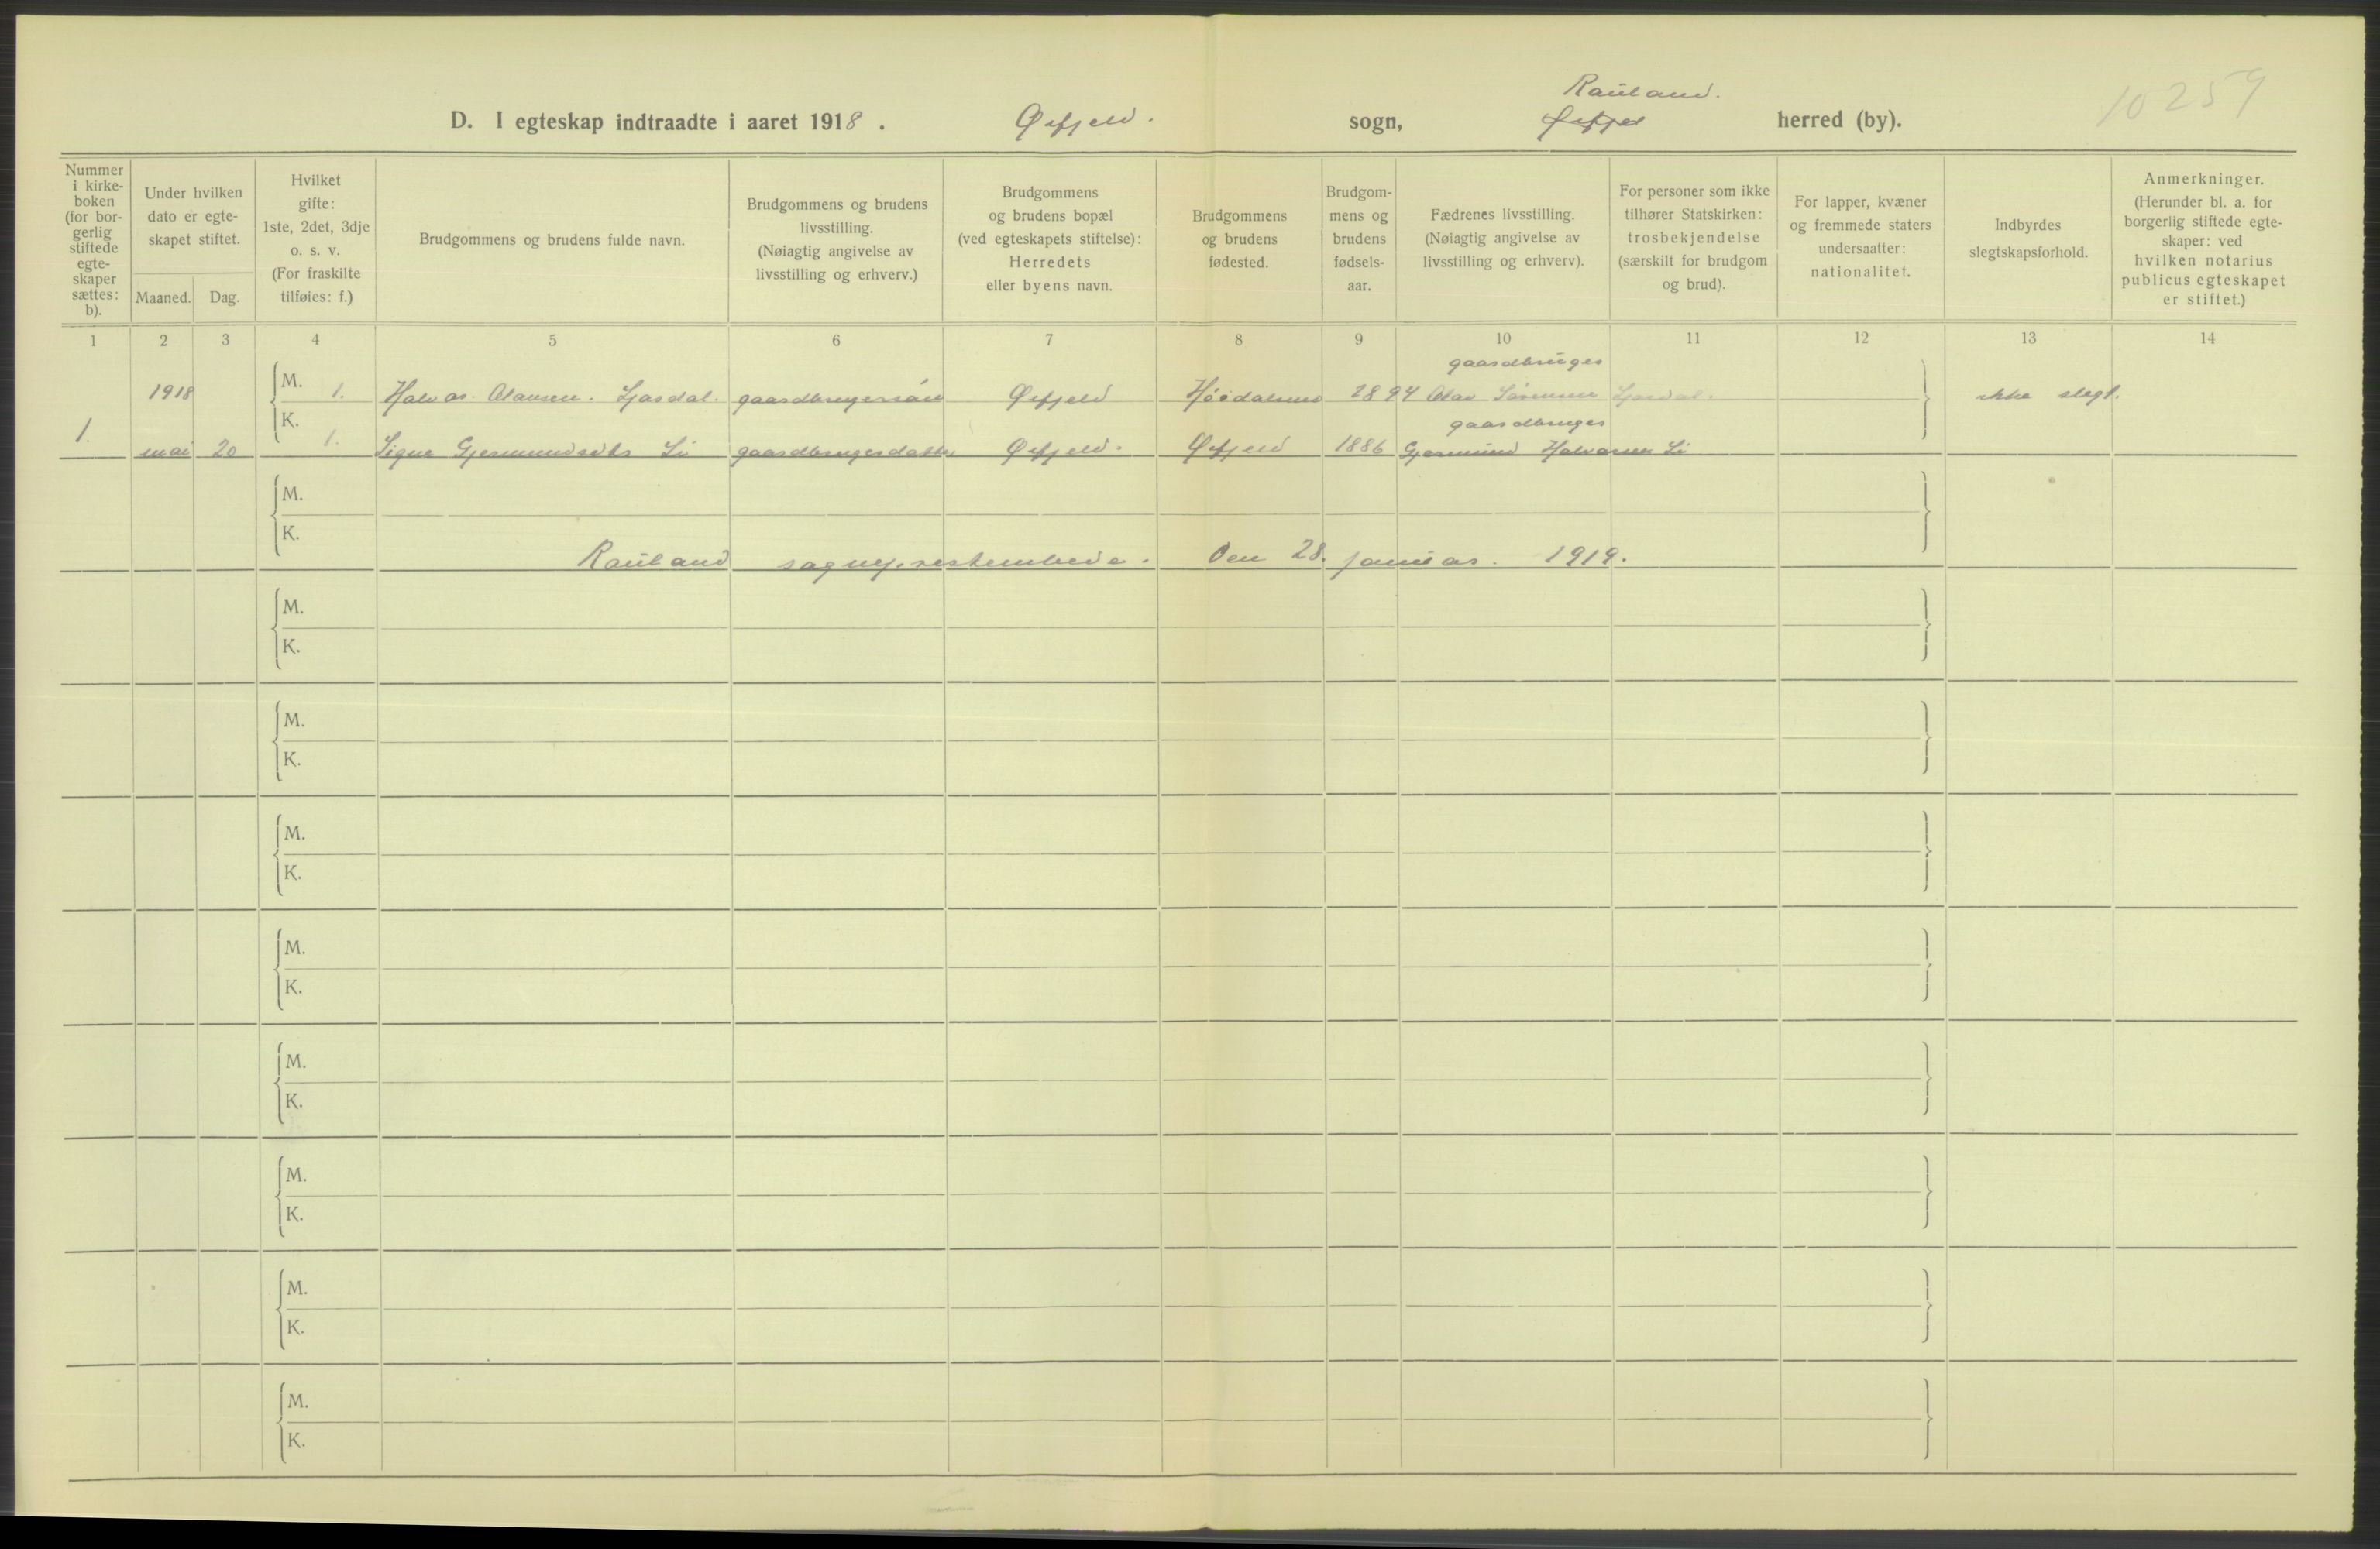 Rauland.
10259
D. I egteskap indtraadte i aaret 1918. Øifjeld. sogn, herred (by).
Nummer i kirkeboken (for borgerlig stiftede egteskaper sættes: b).
Under hvilken dato er egteskapet stiftet.
Maaned. Dag.
Hvilket gifte: 1ste, 2det, 3dje o. s. v. (For fraskilte tilføies: f.)
Brudgommens og brudens fulde navn.
Brudgommens og brudens livsstilling. (Nøiagtig angivelse av livsstilling og erhverv.)
Brudgommens og brudens bopæl (ved egteskapets stiftelse): Herredets eller byens navn.
Brudgommens og brudens fødested.
Brudgommens og brudens fødselsaar.
Fædrenes livsstilling. (Nøiagtig angivelse av livsstilling og erhverv).
For personer som ikke tilhører Statskirken: trosbekjendelse (særskilt for brudgom og brud).
For lapper, kvæner og fremmede staters undersaatter: nationalitet.
Indbyrdes slegtskapsforhold.
Anmerkninger. (Herunder bl. a. for borgerlig stiftede egteskaper: ved hvilken notarius publicus egteskapet er stiftet.)
1 2 3 4 5 6 7 8 9 10 11 12 13 14
gaardbruger
1918 M. 1. Halvor Olavsen. gaardbrugersøn Øifjeld Høidalsmo 1894 Olav ikke slegt.
K. gaardbruger
1. mai 20 1. Signe Gjermundsdtr Li gaardbrugerdatter Øifjeld. Øifjeld 1886 Gjermund Halvorsen Li
M.
K.
Rauland sogneprestembede. Den 28. januar. 1919.
M.
K.
M.
K.
M.
K.
M.
K.
M.
K.
M.
K.
M.
K.
M.
K.